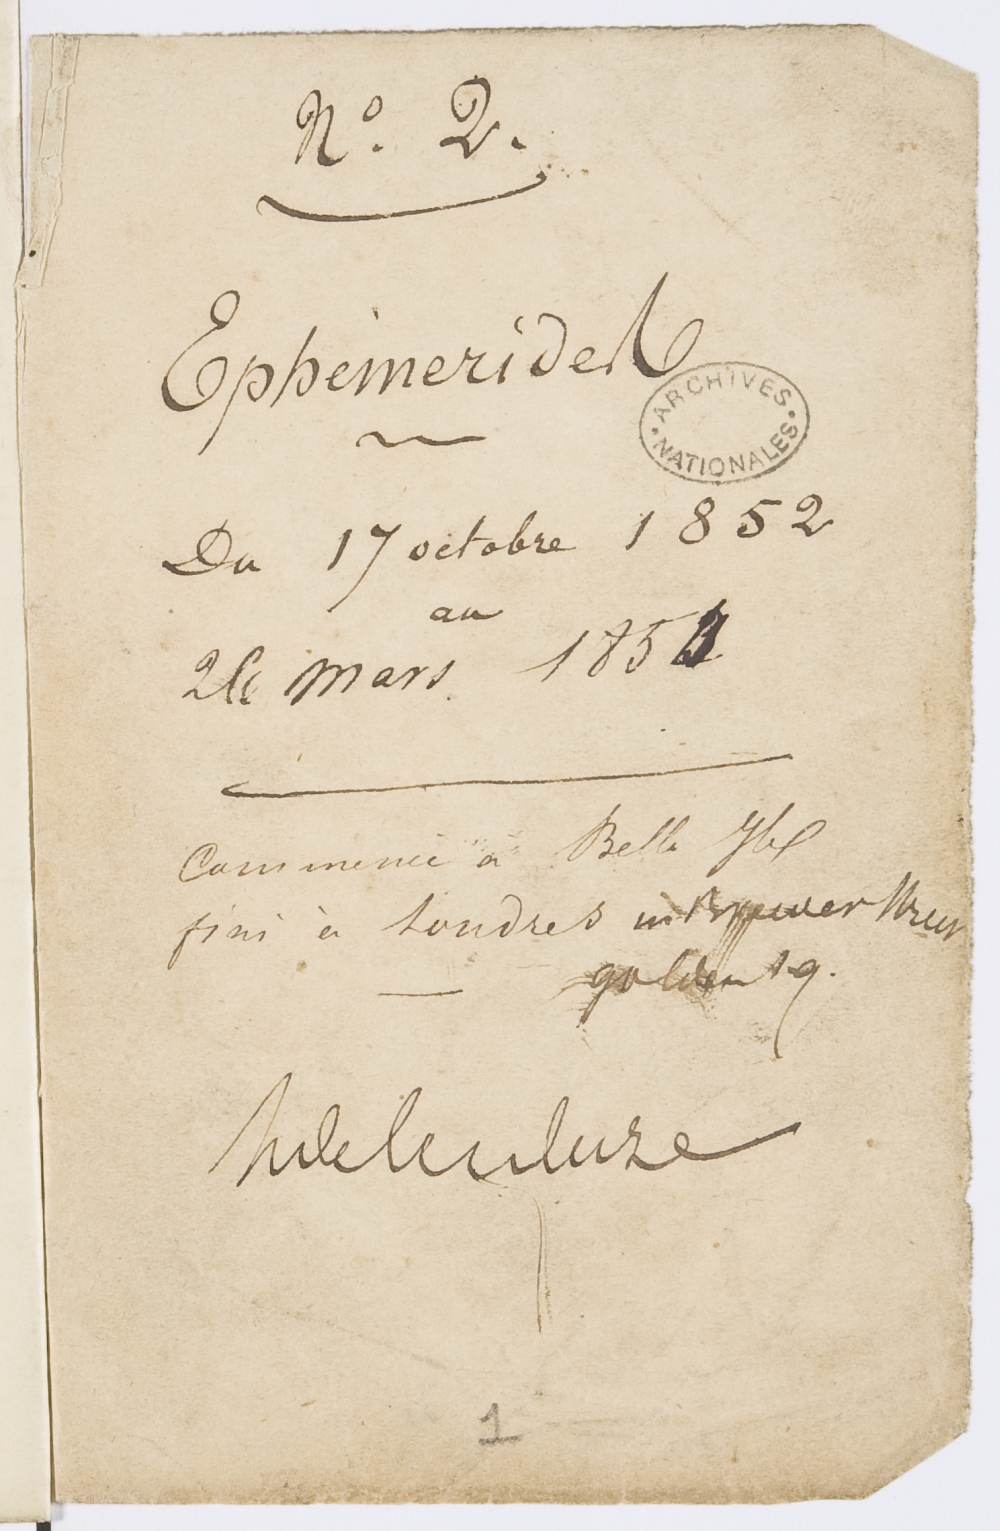 N° 2.
Ephémerides
ARCHIVES NATIONALES
Du 17 octobre 1852
au
26 mars 185
Commencé à Belle Isle
fini à Londres in Brewer Street
golden sq.
1